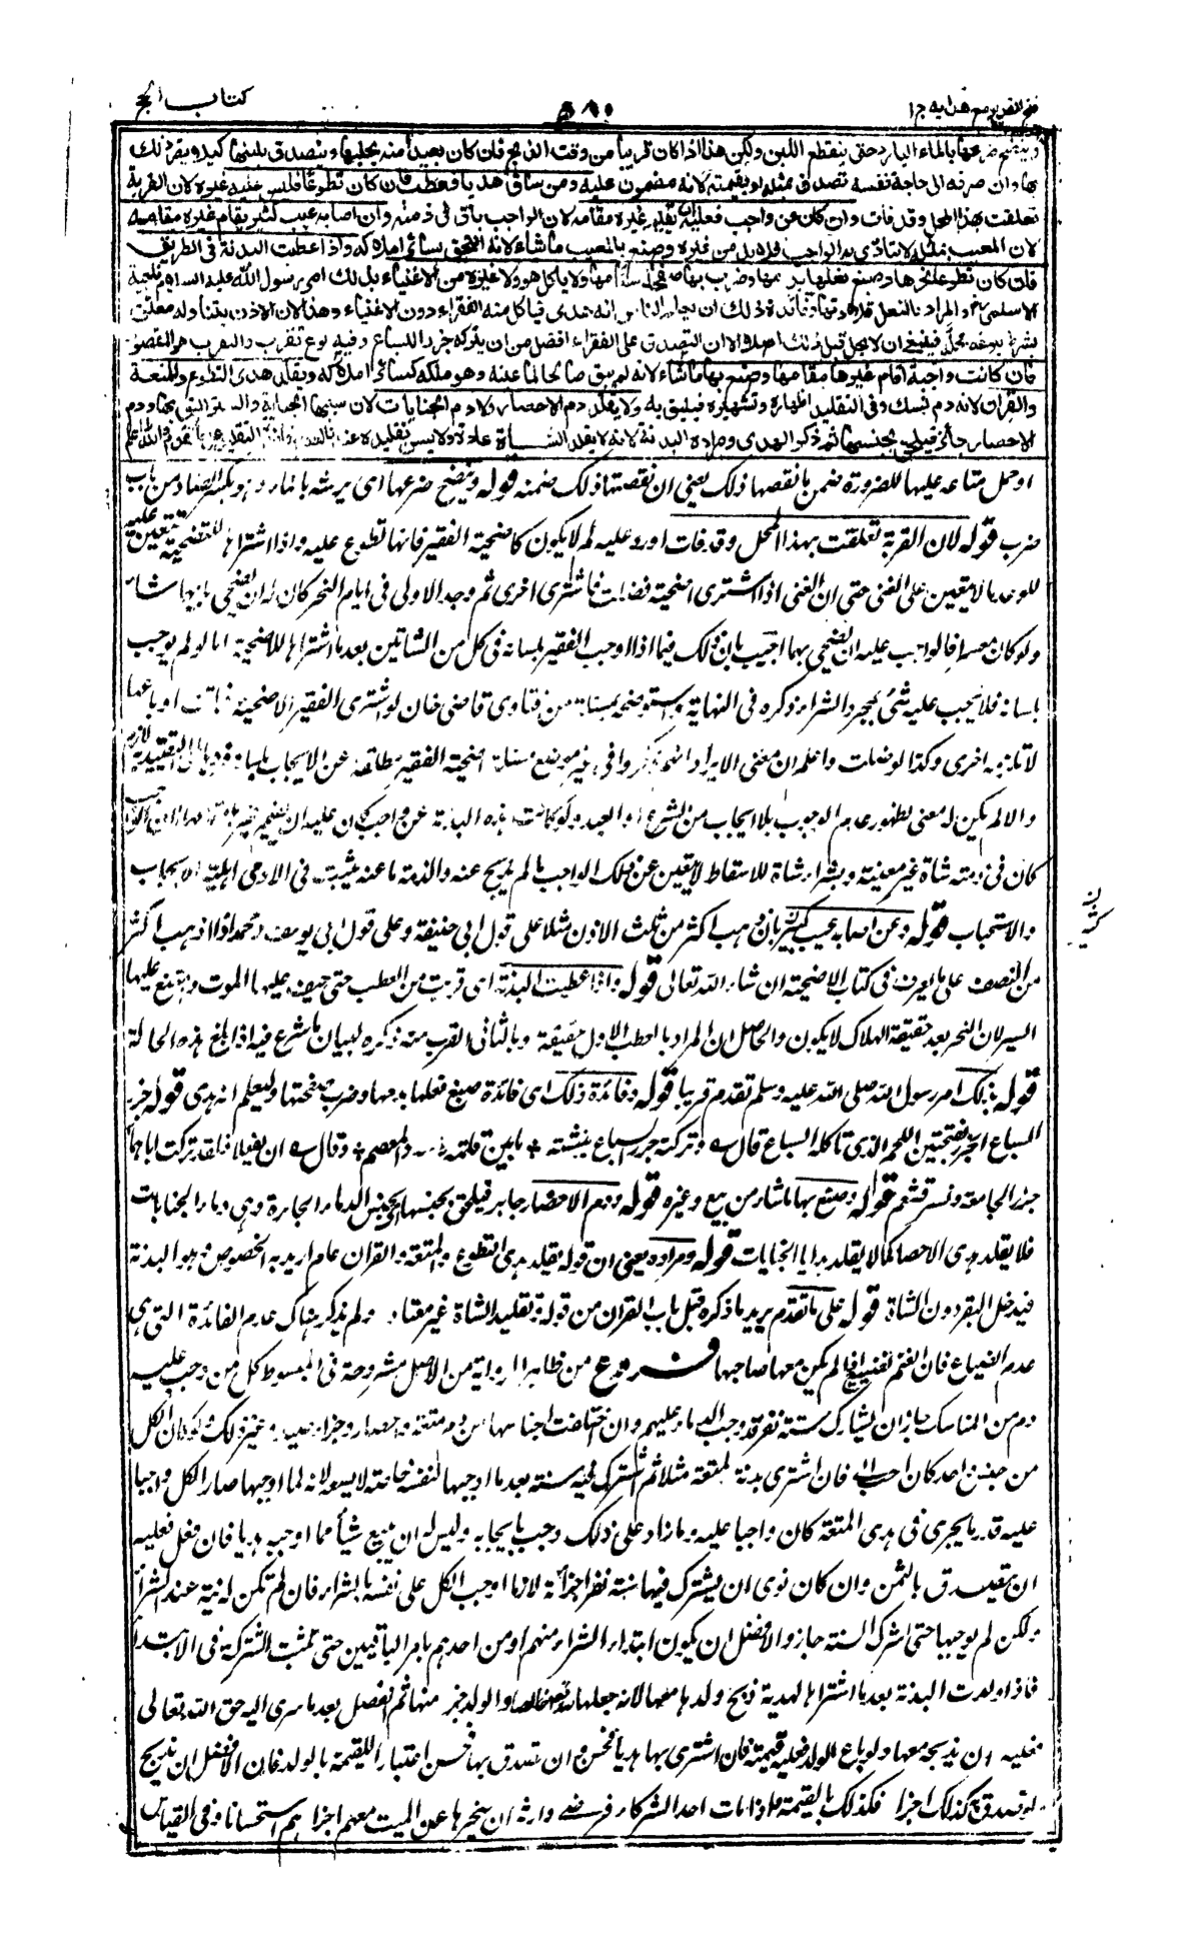 فتح القدير مع هدايه ج ١
٥٨٠
كتاب الحج
وينضح ضرعها بالماء البارد حتى ينقطع اللبن ولكن هذا اذا كان قريبا من وقت الذبح فان كان بعيدا منه يحلبها ويتصدق بلبنها كيلا يضر ذلك
بها وان صرفه الى حاجة نفسه تصدق بمثله او بقيمته لانه مضمون عليه ومن ساق هديا فعطب فان كان تطوعا فليس عليه غيره لان القربة
تعلقت بهذا المحل وقد فات وان كان عن واجب فعليه ان يقيم غيره مقامه لان الواجب باق فى ذمته وان اصابه عيب كثير يقام غيره مقامه
لان المعيب بمثله لا يتادى به الواجب فلا بد من غيره وصنع بالمعيب ما شاء لانه التحق بسائر املاكه واذا عطبت البدنة فى الطريق
فان كان تطوعا نحرها وصبغ نعلها بدمها وضرب بها صفحة سنامها ولا ياكل هو ولا غيره من الاغنياء بذلك امر رسول الله عليه السلام ناجية
الاسلمى والمراد بالنعل قلادتها وفائدة ذلك ان يعلم الناس انه هدى فياكل منه الفقراء دون الاغنياء وهذا لان الاذن بتناوله معلق
بشرط بلوغه محله فينبغى ان لا يحل قبل ذلك اصلا الا ان التصدق على الفقراء افضل من ان يتركه جزر اللسباع وفيه نوع تقرب والتقرب هو المقصود
فان كانت واجبة اقام غيرها مقامها وصنع بها ما شاء لانه لم يبق صالحا لما عينه وهو ملكه كسائر املاكه ويقلد هدى التطوع والمتعة
والقران لانه دم نسك وفى التقليد اظهاره وتشهيره فيليق به ولا يقلد دم الاحصار ولا دم الجنايات لان سببها الجناية والستر اليق بها ودم
الاحصار جابر فيلحق بجنسها ثم ذكر الهدى ومراده البدنة لانه لا يقلد الشاة عادة ولا يسن تقليده عندنا لعدم فائدة التقليد على ما تقدم والله اعلم
او حمل متاعه عليها للضرورة ضمن ما نقصها ذلك يعنى ان نقصتها ذلك ضمنه قوله وينضح ضرعها اى يرشه بالماء وهو بكسر الضاد من باب
ضرب قوله لان القربة تعلقت بهذا المحل وقد فات اورد عليه لم لا يكون كاضحية الفقير فانها تطوع عليه واذا اشتراها للتضحية تتعين عليه
للوجوب لا يتعين على الغنى حتى ان الغنى اذا اشترى اضحية فضلت فاشترى اخرى ثم وجد الاولى فى ايام النحر كان له ان يضحى بايهما شاء
ولو كان معسرا فالواجب عليه ان يضحى بهما اجيب بان ذلك فيما اذا اوجب الفقير بلسانه فى كل من الشاتين بعد ما اشتراها للاضحية اما لو لم يوجب
بلسانه فلا يجب عليه شئ بمجرد الشراء ذكره فى النهاية من فتاوى قاضى خان لو اشترى الفقير الاضحية فماتت او باعها
لا تلزمه اخرى وكذا لو ضلت واعلم ان معنى الايراد انهم ذكروا فى غير موضع مسئلة اضحية الفقير مطلقة عن الايجاب بلسانه
والا لم يكن له معنى لظهور عدم الوجوب بلا ايجاب من الشرع او العبد ولو كانت هذه البدنة عن واجب كان عليه ان يقيم غيرها
كان فى ذمته شاة غير معينة وبشراء شاة للاسقاط لا يتعين عن ذلك الواجب ما لم يذبح عنه والذمة ما عنه يثبت فى الادمى اهلية الايجاب
والاستحباب قوله ومن اصابه عيب كبير بان ذهب اكثر من ثلث الاذن مثلا على قول ابى حنيفة وعلى قول ابى يوسف ومحمد اذا ذهب اكثر
من النصف على ما يعرف فى كتاب الاضحية ان شاء الله تعالى قوله واذا عطبت البدنة اى قربت من العطب حتى خيف عليها الموت وامتنع عليها
السير لان النحر بعد حقيقة الهلاك لا يكون والحاصل ان المراد بالعطب الاول حقيقة وبالثانى القرب منه ذكره لبيان ما شرع فيه اذا بلغ هذه الحالة
قوله بذلك امر رسول الله صلى الله عليه وسلم تقدم قريبا قوله وفائدة ذلك اى فائدة صبغ نعلها بدمها وضرب صفحتها وليعلم انه هدى قوله جزر
السباع الجزر بفتحتين اللحم الذى تاكله السباع قال وتركته جزر السباع ينشنه + ما بين قلة والمعصم + وقال ان يفعلا فلقد تركت اباهما
جزر الجامعة ونسر قشعم قوله وصنع بها ما شاء من بيع وغيره قوله ودم الاحصار جابر فيلحق بجنسها اى جنس الدماء الجابرة وهى دماء الجنايات
فلا يقلد هدى الاحصار كما لا يقلد هدايا الجنايات قوله ومراده يعنى ان قوله يقلد هدى التطوع والمتعة والقران عام اريد به الخصوص وهو البدنة
فيدخل البقر دون الشاة قوله على ما تقدم يريد ما ذكره قبل باب القران من قوله تقليد الشاة غير معتاد ولم يذكر هناك عدم الفائدة التى هى
عدم الضياع فان الغنم تضيع اذا لم يكن معها صاحبها فــروع من ظاهر الرواية من الاصل مشروحة فى المبسوط كل من وجب عليه
دم من المناسك جاز ان يشارك ستة نفر قد وجب الدماء عليهم وان اختلفت اجناسها من دم متعة واحصار وجزاء صيد وغير ذلك ولو كان الكل
من جنس واحد كان احب الى فان اشترى بدنة لمتعة مثلا ثم اشترك فيه ستة بعد ما اوجبها لنفسه خاصة لا يسعه لانه لما اوجبها صار الكل واجبا
عليه قدر ما يجزى فى هدى المتعة كان واجبا عليه وما زاد على ذلك وجب بايجابه وليس له ان يبيع شيأ مما اوجبه هديا فان فعل فعليه
ان يتصدق بالثمن وان كان نوى ان يشترك فيها ستة نفر اجزأته لانه ما اوجب الكل على نفسه بالشراء فان لم تكن له نية عند الشراء
ولكن لم يوجبها حتى اشرك الستة جاز والافضل ان يكون ابتداء الشراء منهم او من احدهم بامر الباقيين حتى تثبت الشركة فى الابتداء
فاذا ولدت البدنة بعد ما اشتراها لهديه ذبح ولدها معها لانه جعلها لله خالصا والولد جزء منها ثم انفصل بعد ما سرى اليه حق الله تعالى
فعليه ان يذبحه معها ولو باع الولد فعليه قيمته فان اشترى بها هديا فحسن وان تصدق بها فحسن اعتبارا للقيمة بالولد فان الافضل ان يذبح
لو تصدق به كذلك اجزأه فكذلك بالقيمة واذا مات احد الشركاء فرضى وارثه ان ينحرها عن الميت معهم اجزاهم استحسانا وفى القياس